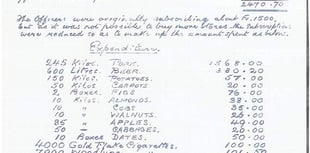 2470.70
The Officers were originally subscribing about Fr.1500,
but as it was not possible to buy more stores the subscriptions
were reduced so as to make up the amount spent as below.
Expenditure.
245 Kilos. Pork. 1368.00
600 Litres. Beer. 330.20
150 Kilos. Potatoes. 57.00
50 Kilos. Carrots 20.00
2 Boxes. Figs 76.00
10 Kilos. Almonds. 38.00
10 " Cobs 35.00
10 " Walnuts. 26.00
85 " Apples. 49.00
50 — Cabbages. 26.00
10 Boxes Dates. 50.00
4000 Gold Flake Cigarettes. 100.00